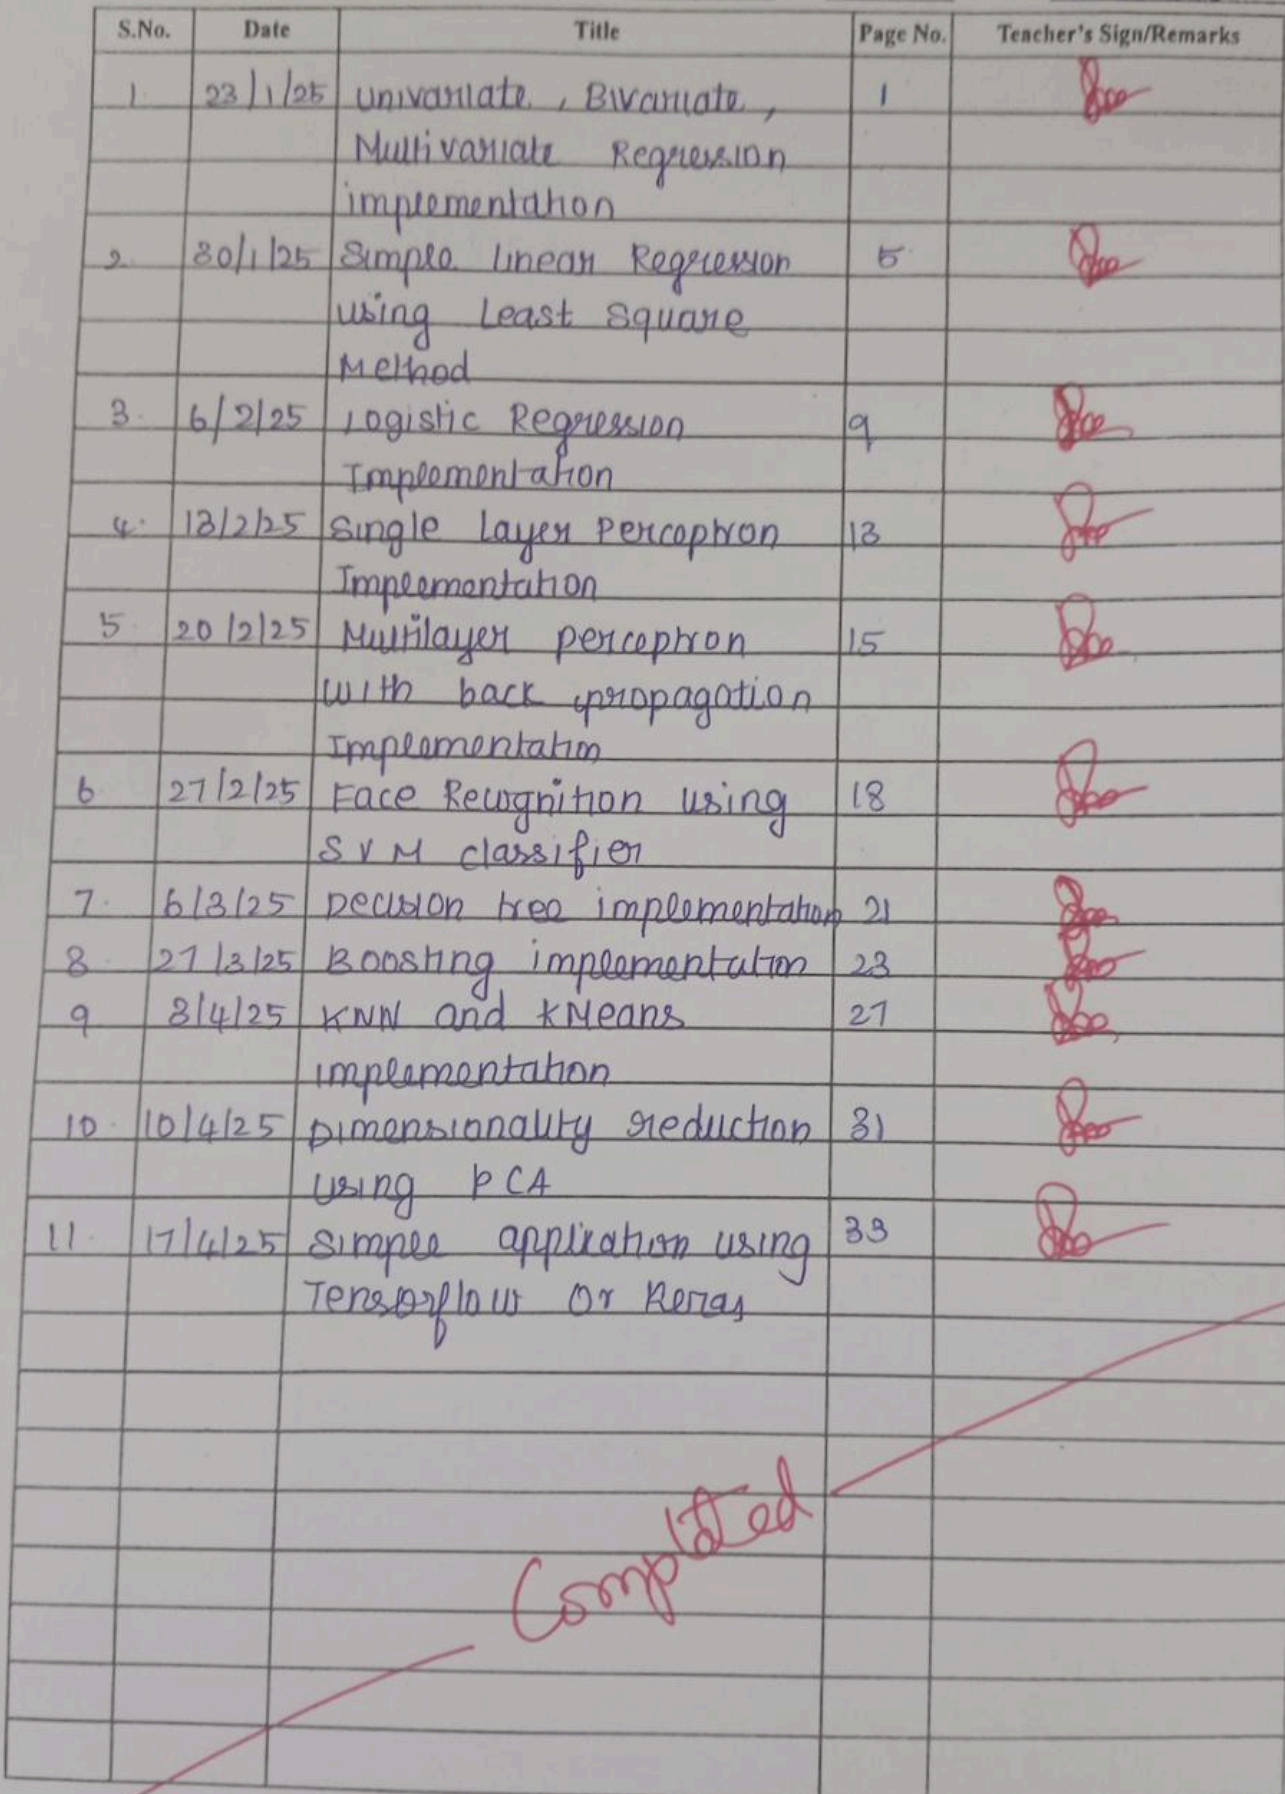 S.No. Date Title Page No. Teacher's Sign/Remarks
1. 23/1/25 Univariate, Bivariate, 1
Multivariate Regression
implementation
2. 30/1/25 Simple linear Regression 5
using Least Square
Method
3. 6/2/25 Logistic Regression 9
Implementation
4. 13/2/25 Single Layer Perceptron 13
Implementation
5. 20/2/25 Multilayer perceptron 15
with back propagation
Implementation
6. 27/2/25 Face Recognition using 18
SVM classifier
7. 6/3/25 Decision tree implementation 21
8. 27/3/25 Boosting implementation 23
9. 3/4/25 KNN and KMeans 27
implementation
10. 10/4/25 Dimensionality reduction 31
using PCA
11. 17/4/25 Simple application using 33
Tensorflow Or Keras
Completed